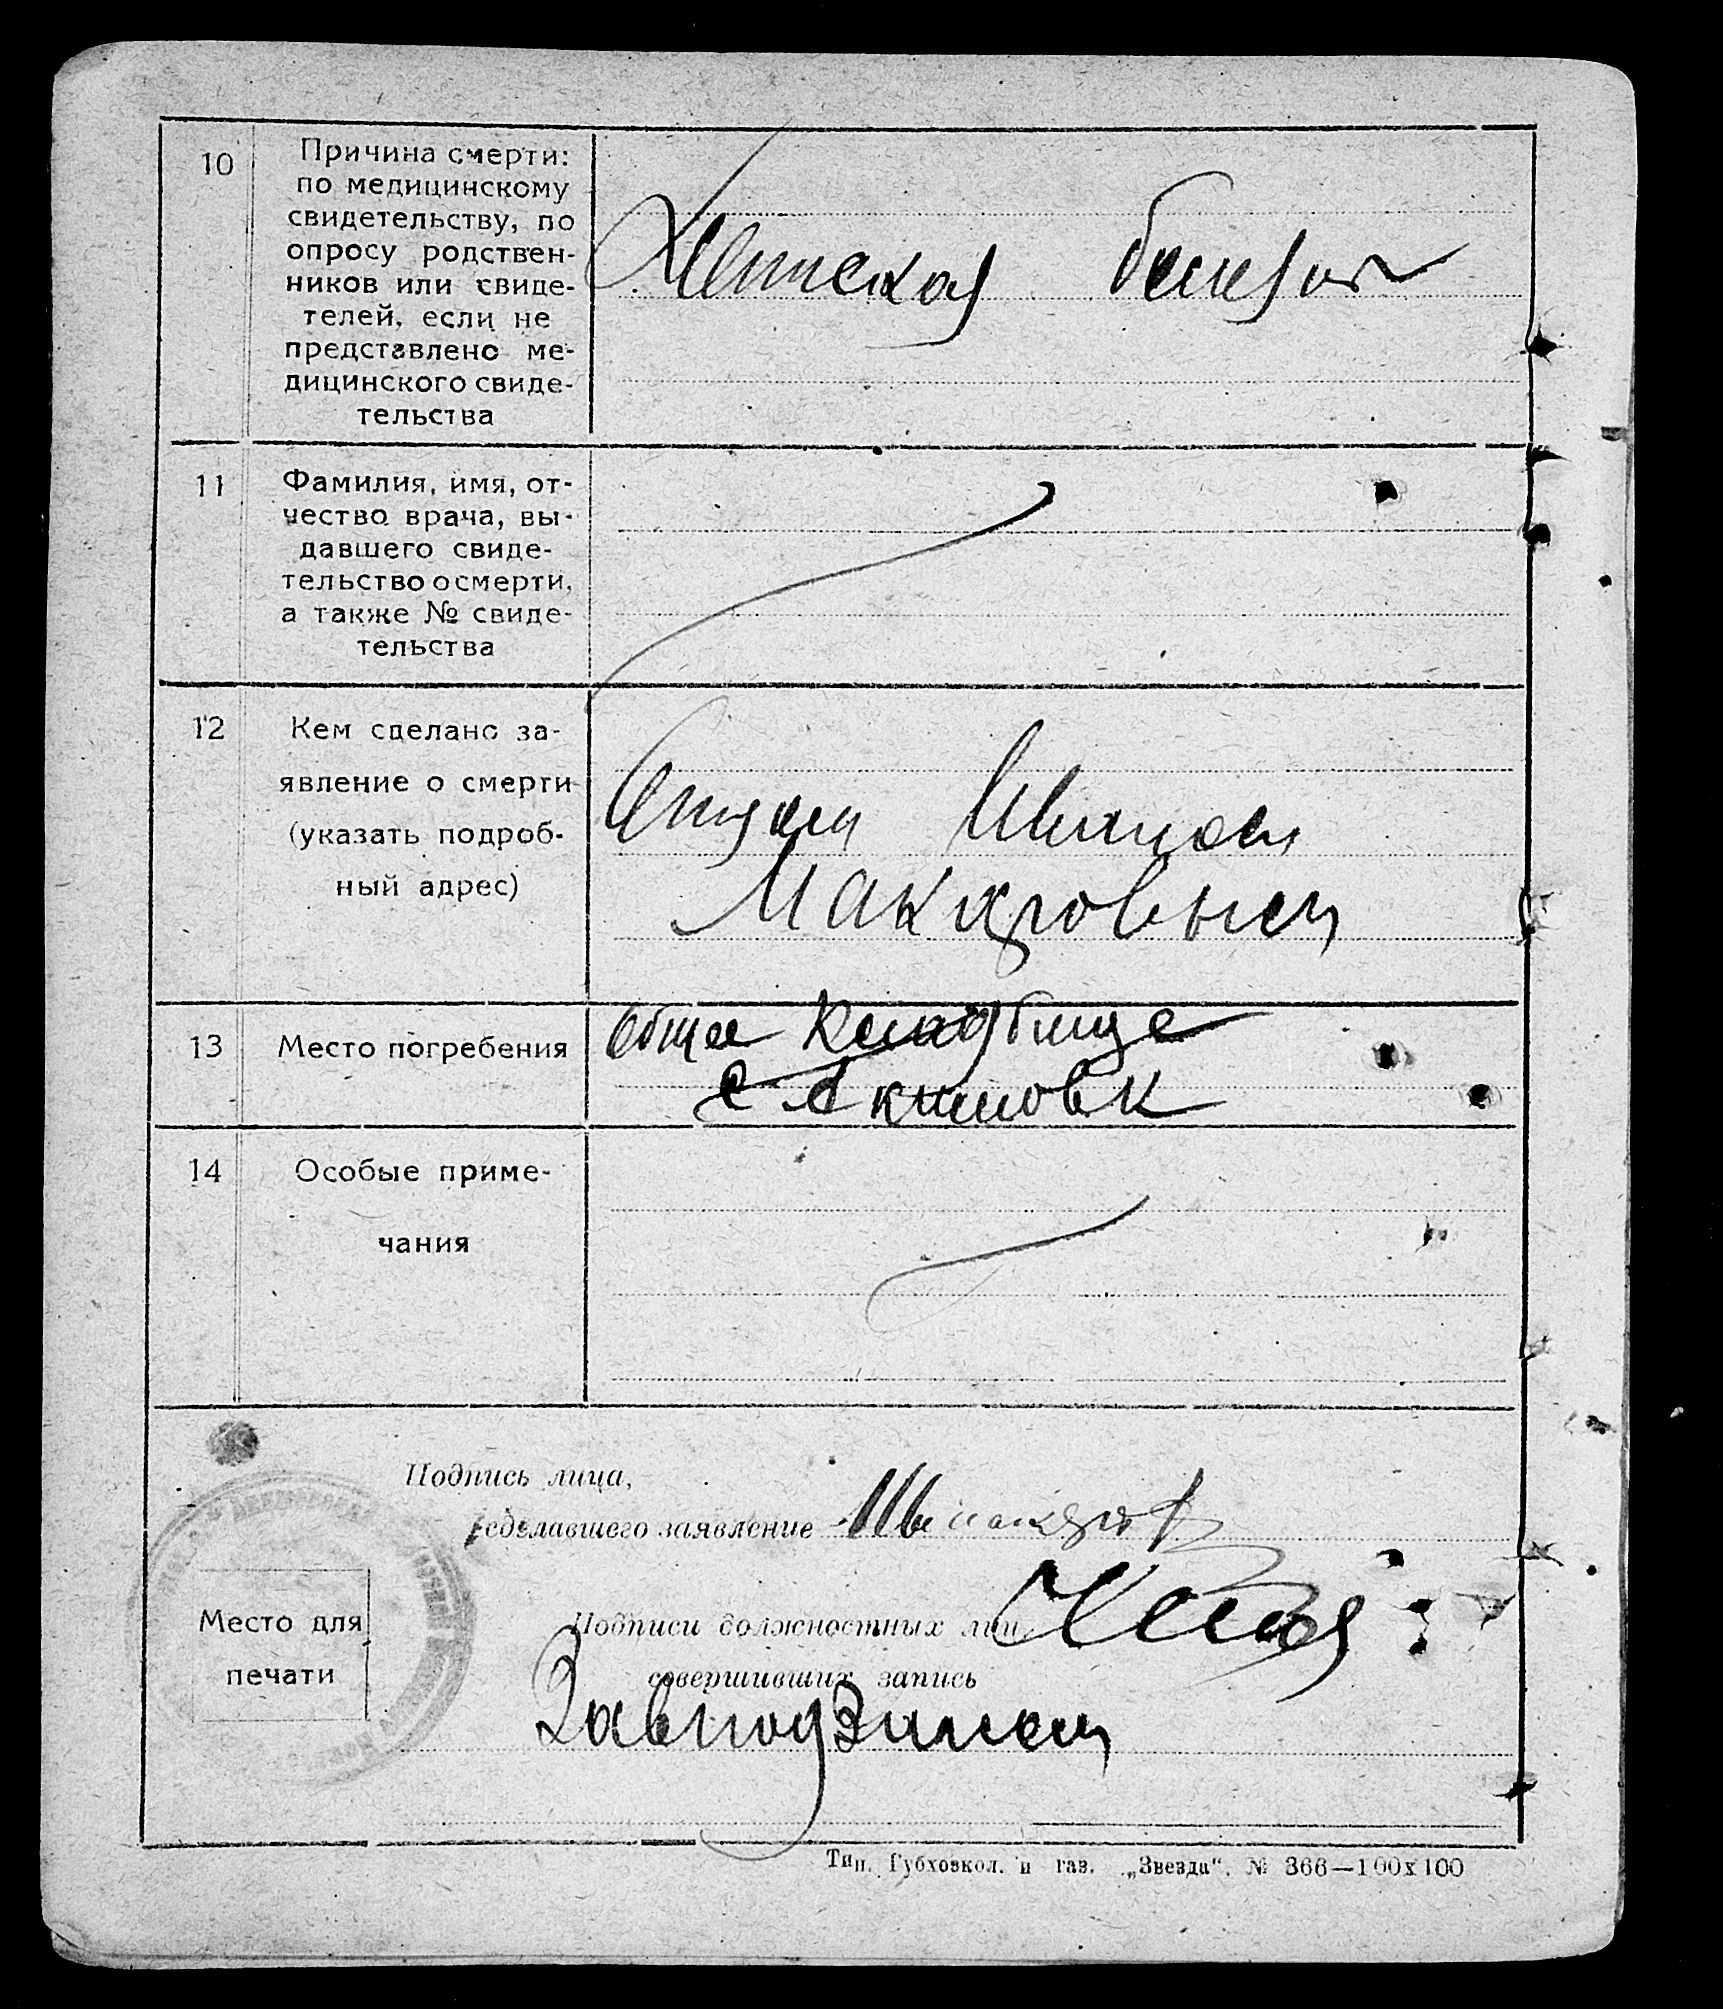 10
Причина смерти:
по медицинскому
свидетельству, по
опросу родствен-
ников или свиде-
телей, если не
представлено ме-
дицинского свиде-
тельства
11
Фамилия, имя, от-
чество врача, вы-
давшего свиде-
тельство о смерти,
а также № свиде-
тельства
12
Кем сделано за-
явление о смерти
(указать подроб-
ный адрес)
Отцом
Макаровым
13
Место погребения
Общее кладбище
с Акимовк
14
Особые приме-
чания
Подпись лица,
сделавшего заявление
Подписи должностных лиц,
совершивших запись
Место для
печати
Тип. Губховкол. и газ. „Звезда“. № 366—100х100